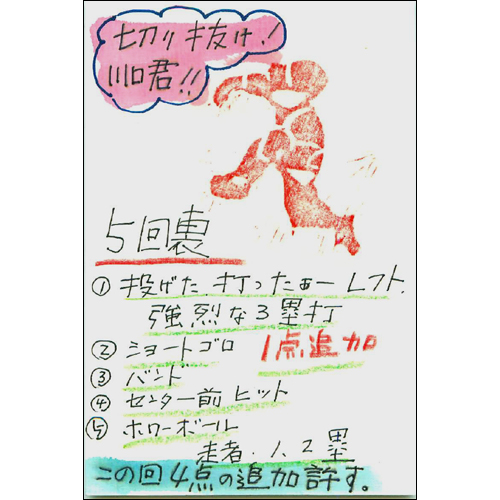 切り抜け!
川口君!!
5回裏
① 投げた、打ったぁー レフト、
強烈な3塁打
② ショートゴロ 1点追加
③ バンド
④ センター前ヒット
⑤ ホワーボール
走者・1、2塁
この回4点の追加許す。